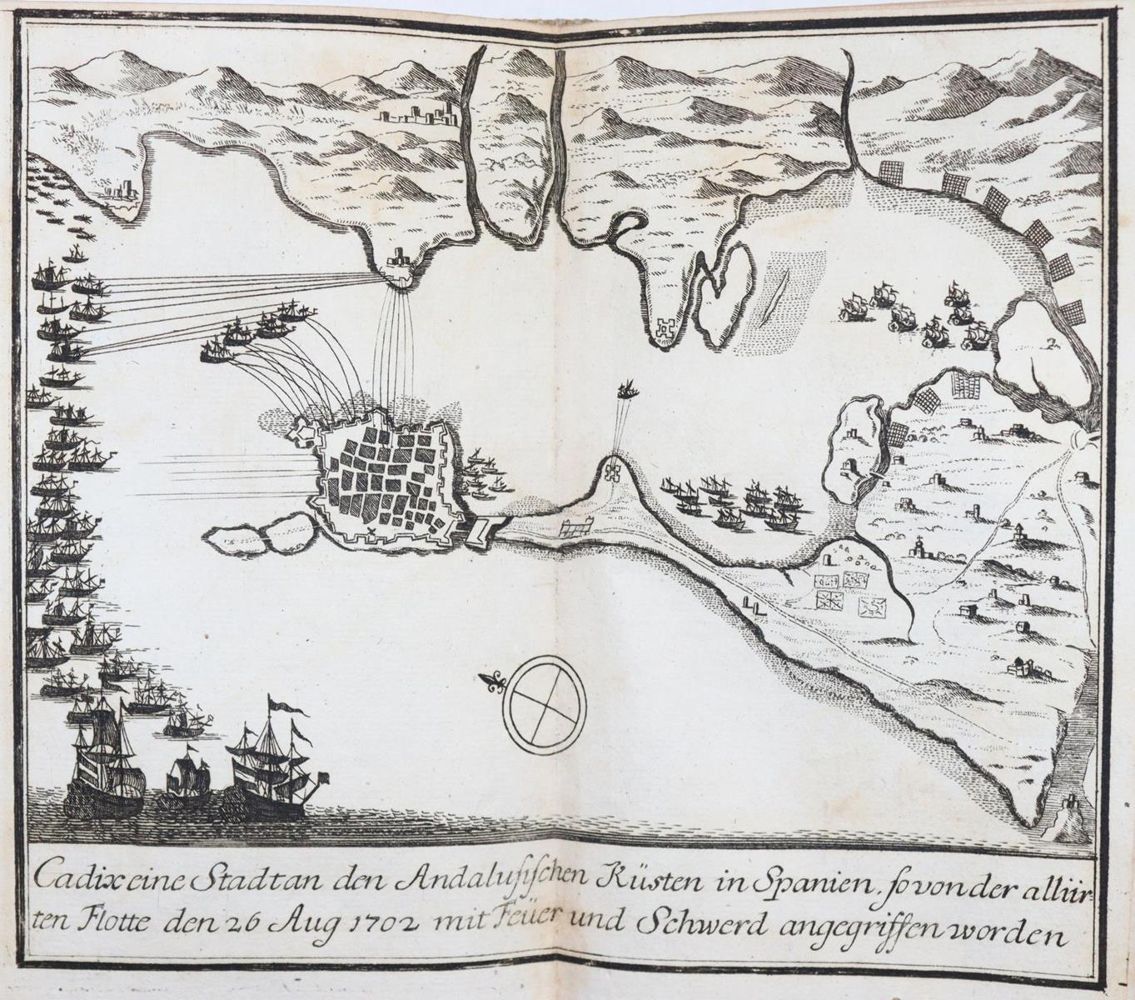 Cadix eine Stadt an den Andalusischen Küsten in Spanien. so von der alliir-
ten Flotte den 26 Aug 1702 mit Feüer und Schwerd angegriffen worden